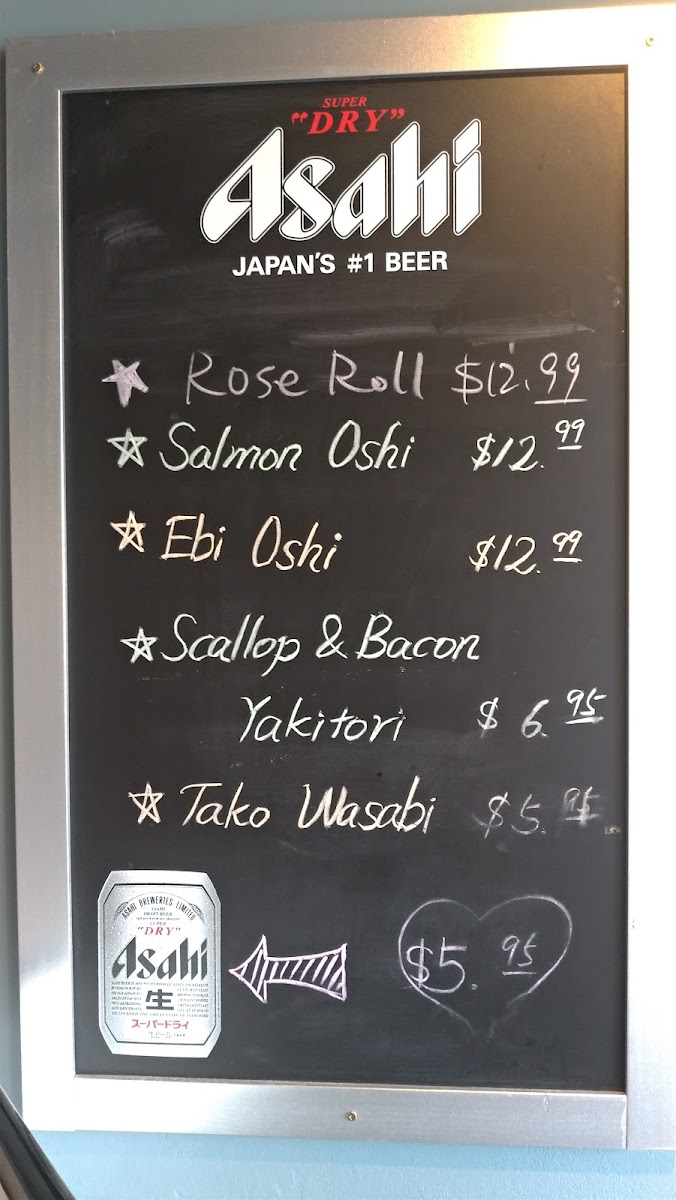 SUPER
"DRY"
Asahi
JAPAN'S #1 BEER
Rose Roll $12.99
Salmon Oshi $12.99
Ebi Oshi $12.99
Scallop & Bacon
Yakitori $6.95
Tako Wasabi $5.95
ASAHI BREWERIES LIMITED
ASAHI
DRAFT BEER
SUPER
"DRY"
Asahi
生
スーパードライ
$5.95